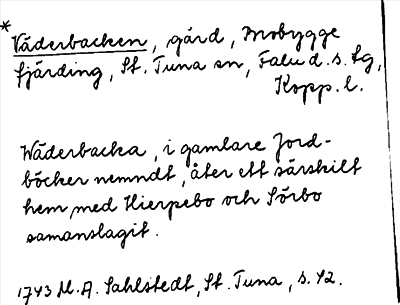 * Väderbacken, gård, Brobygge
fjärding, St. Tuna sn, Falu d. s. tg,
Kopp. l.
Wäderbacka, i gamlare Jord-
böcker nemndt, åter ett särskilt
hem, med Hierpebo och Sörbo
samanslagit.
1743 M. A. Sahlstedt, St. Tuna, s. 42.